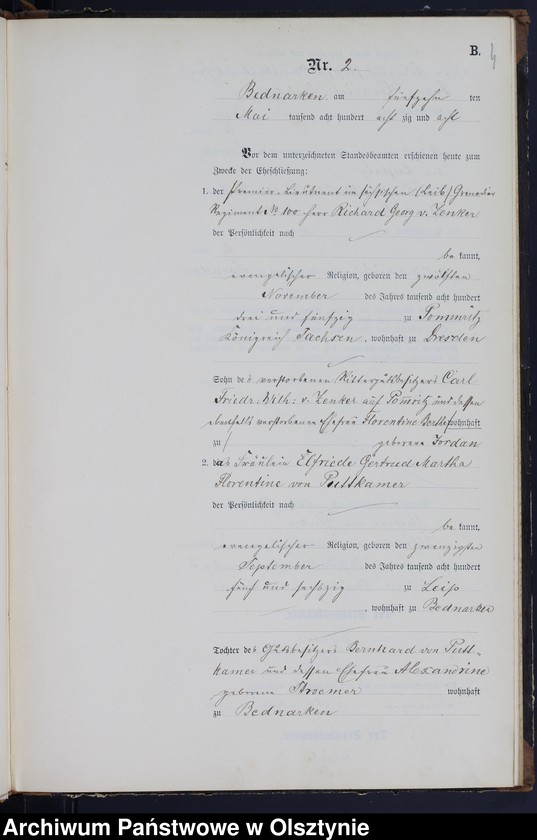 B.
4
Nr. 2.
Bednarken am fünfzehn ten
Mai tausend acht hundert acht zig und acht
Vor dem unterzeichneten Standesbeamten erschienen heute zum
Zwecke der Eheschließung:
1. der Premier-Lieutenant im sächsischen (Leib) Grenadier
Regiment № 100 Herr Richard Georg v. Zenker
der Persönlichkeit nach
be kannt,
evangelischer Religion, geboren den zwölften
November des Jahres tausend acht hundert
drei und fünfzig zu Pommritz
Königreich Sachsen, wohnhaft zu Dresden
Sohn des verstorbenen Rittergutsbesitzers Carl
Friedr. Wilh. v. Zenker auf Pomritz und dessen
ebenfalls verstorbenen Ehefrau Florentine Bertha wohnhaft
zu geborene Jordan
2. das Fräulein Elfriede Gertrud Martha
Florentine von Puttkamer
der Persönlichkeit nach
be kannt,
evangelischer Religion, geboren den zwanzigsten
September des Jahres tausend acht hundert
fünf und sechszig zu Leip
, wohnhaft zu Bednarken
Tochter des Gutsbesitzers Bernhard von Putt-
kamer und dessen Ehefrau Alexandrine
geborene Stroemer wohnhaft
zu Bednarken
Archiwum Państwowe w Olsztynie